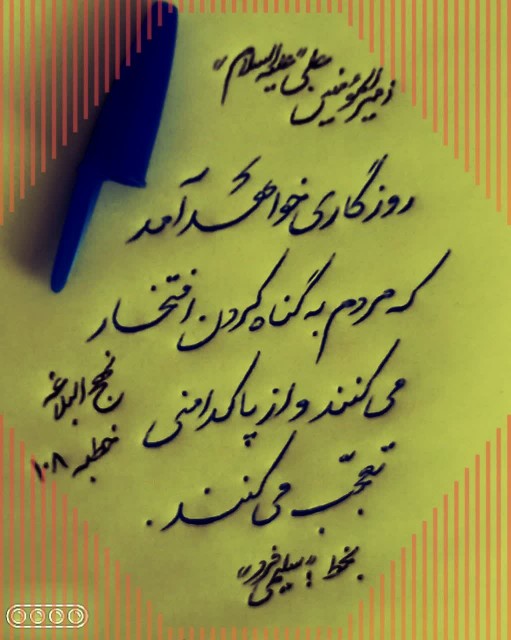 امیرالمؤمنین علی "علیه‌السلام"
روزگاری خواهد آمد
که مردم به گناه کردن افتخار
می‌کنند و از پاکدامنی
تعجّب می‌کنند.
نهج البلاغه
خطبه ۱۰۸
بخط: "سلیمی‌فرد"